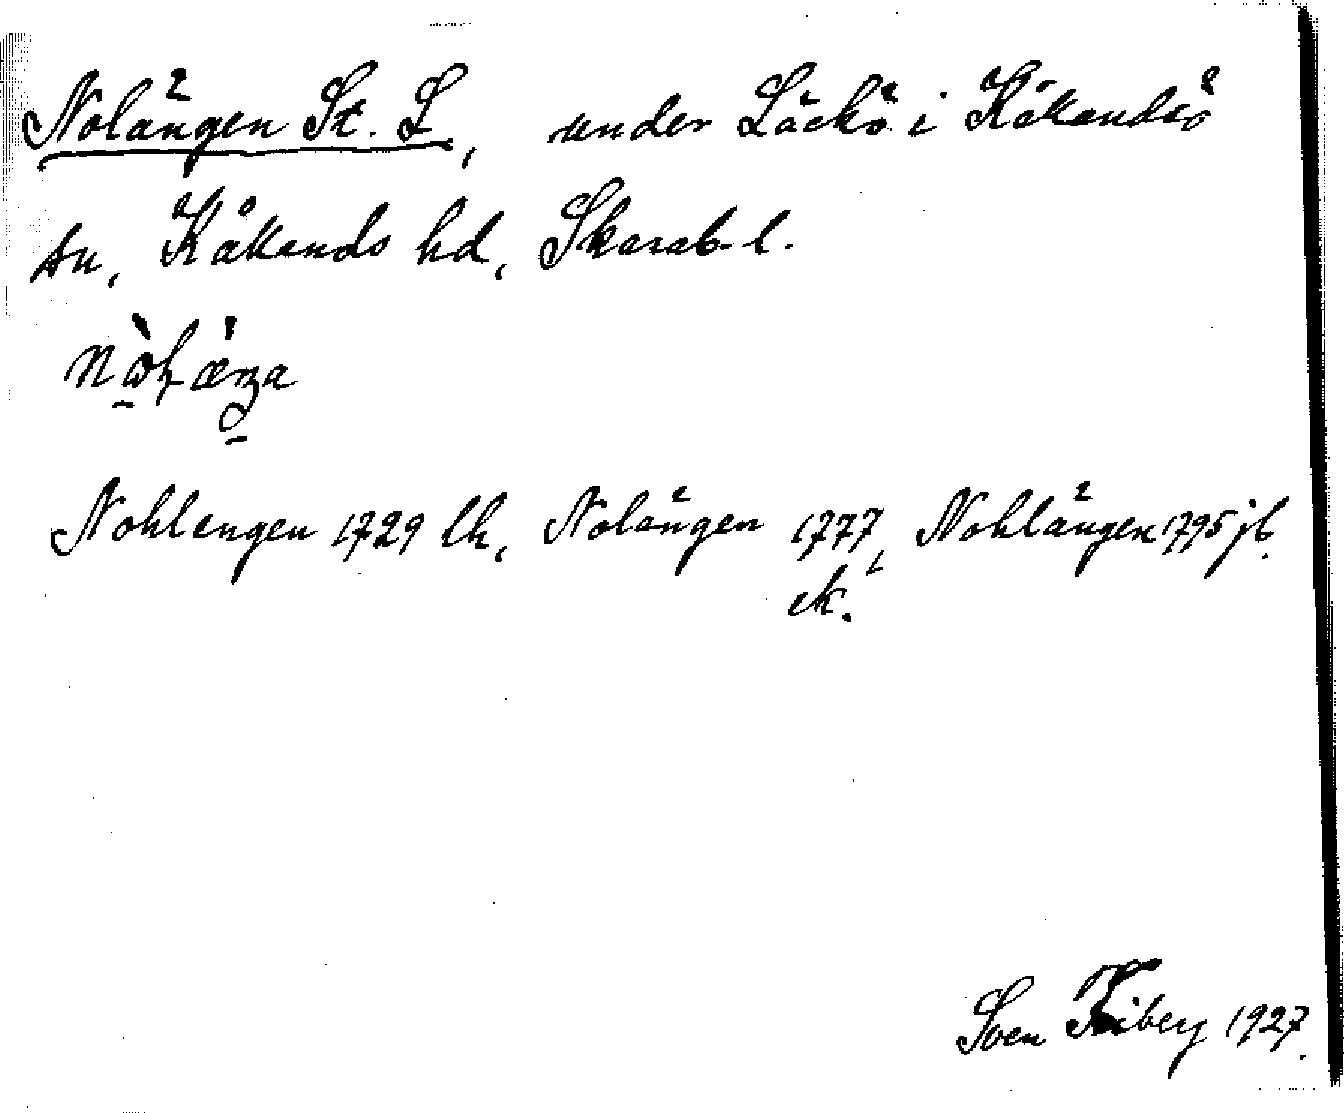 Nolängen St. L., under Läckö i Kållandsö
sn, Kållands hd, Skarab. l.
Nohlengen 1729 lh, Nolängen 1777, Nohlängen 1795 jb.
ck.
Sven Friberg 1927.